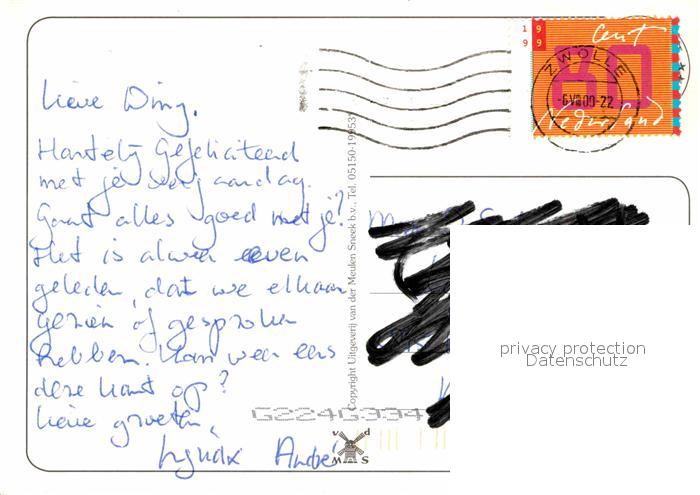 Lieve Diny,
Hartelij Gefeliciteerd
met je verjaardag.
Gaat alles goed met je?
Het is alweer even
geleden, dat we elkaar
gezien of gesproken
hebben. Kom weer eens
deze kant op?
Lieve groeten,
André
Copyright Uitgeverij van der Meulen Sneek b.v., Tel. 05150-19953
vd
M S
G224G334
1 9
9 9
cent
80
Nederland
ZWOLLE
-6 VII 00-22
privacy protection
Datenschutz